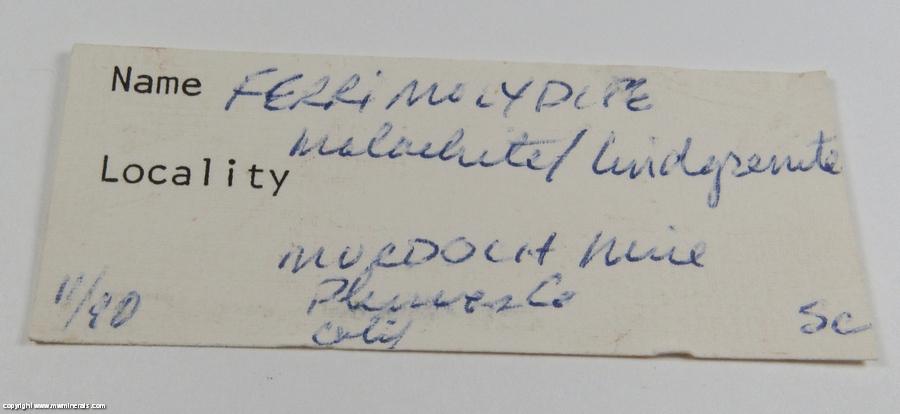 Name FERRiMOLYDITE
Malachite/ lindgrenite
Locality
MURDOCH Mine
Plumas Co
Calif
11/90 Sc
copyright www.mwminerals.com